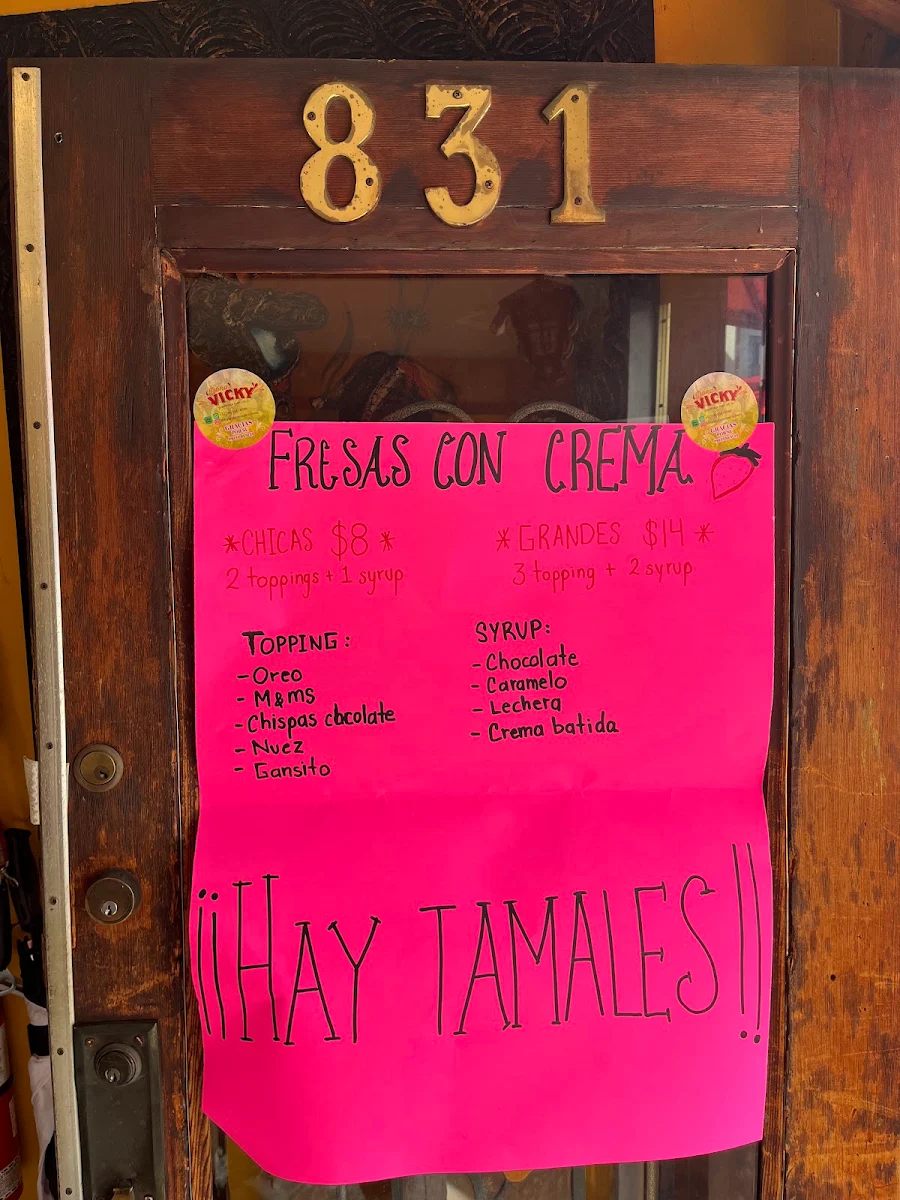 831
VICKY
GRACIAS
VICKY
GRACIAS
FRESAS CON CREMA
*CHICAS $8*
2 toppings + 1 syrup
*GRANDES $14*
3 topping + 2 syrup
TOPPING:
- Oreo
- M&ms
- Chispas chcolate
- Nuez
- Gansito
SYRUP:
- Chocolate
- Caramelo
- Lechera
- Crema batida
¡¡HAY TAMALES!!